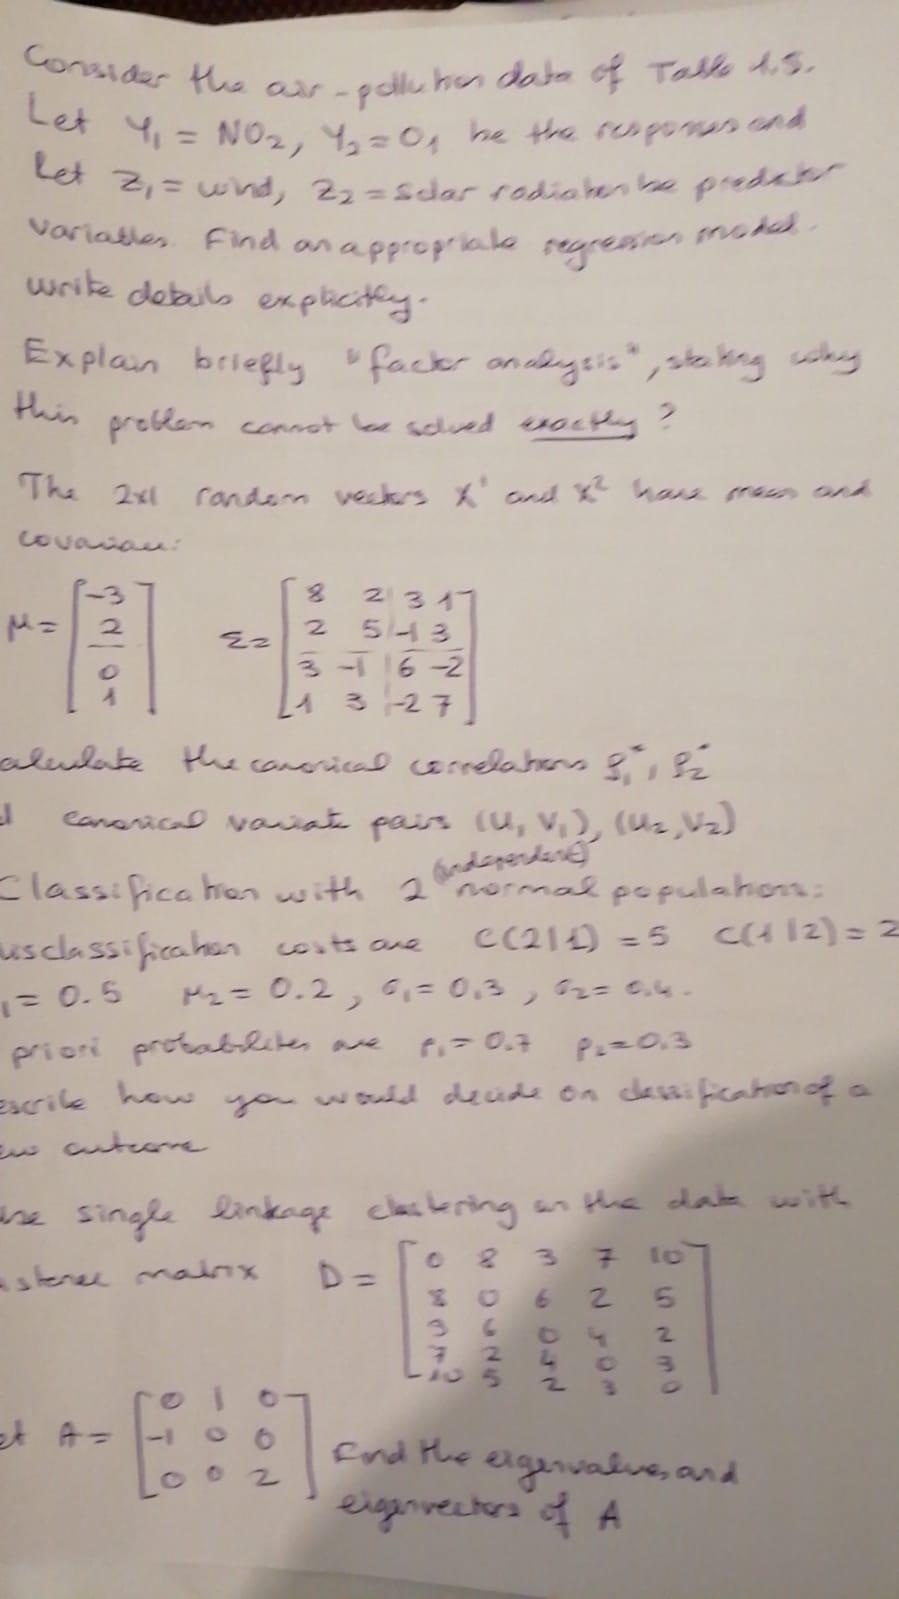 Consider the air-pollution data of Table 1.5.
Let Y₁ = NO₂, Y₂ = O, be the responses and
Let Z₁ = wind, Z₂ = Solar radiation be predictor
variables. Find an appropriate regression model.
write details explicitly.
Explain briefly "factor analysis", stating why
this problem cannot be solved exactly?
The 2x1 random vectors X¹ and X² have mean and
covarian:
μ = [-3 2 0 1] Σ = [8 2 3 1
2 5 -1 3
3 -1 6 -2
1 3 -2 7]
alculate the canonical correlations ρ₁*, ρ₂*
d canonical variate pairs (U, V₁), (U₂, V₂)
(independent)
Classification with 2 normal populations:
isclassification costs are C(2|1) = 5 C(1|2) = 2
₁ = 0.5 μ₂ = 0.2, σ₁ = 0.3, σ₂ = 0.4.
priori probabilites are p₁ = 0.7 p₂ = 0.3
escribe how you would decide on classification of a
ew outcome
se single linkage clustering on the data with
istence matrix D = [0 8 3 7 10
8 0 6 2 5
3 6 0 4 2
7 2 4 0 3
10 5 2 3 0]
et A = [0 1 0
-1 0 0
0 0 2]
Find the eigenvalues and
eigenvectors of A